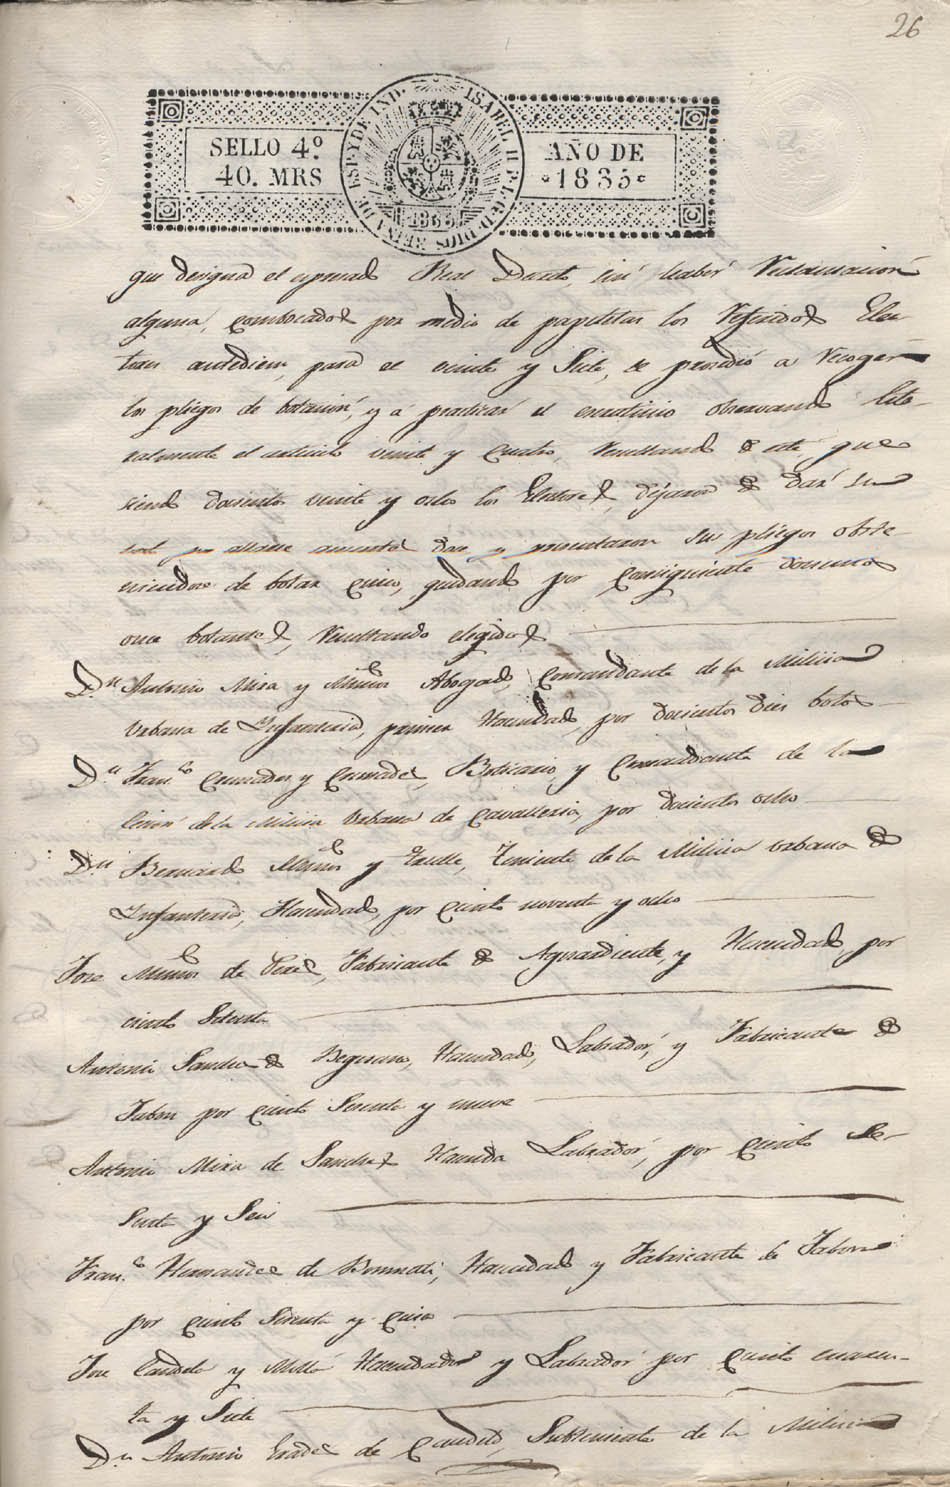 26
SELLO 4º
40. MRS
ISABEL II P. L. G. D. DIOS REINA DE ESP. Y DE IND.
1835
AÑO DE
1835
que designa el espresado Real Decreto, sin haber Reclamacion
alguna, combocados por medio de papeletas los Referidos Elec-
tores para el veinte y Siete, se procedió a Recoger
los pliegos de botacion, y á practicar el escrutinio observando lite-
ralmente el articulo veinte y Cuatro, Resultando de este que
siendo doscientos veinte y ocho los Electores, dejaron de dar su
por allarse ausentes y presentaron su pliego abste-
niendose de botar Cinco, quedando por Consiguiente doscientos
once botantes, Resultando elegidos
Dn Antonio Mira y Muños Abogado, Comandante de la Milicia
Urbana de Infanteria, primer Hacendado, por doscientos dies botos
Dn Franco y Boticario, y Comandante de la
de la Milicia Urbana de Cavalleria, por docientos ocho
Dn Bernardo Muños y Teniente de la Milicia urbana de
Infanteria, Hacendado, por Ciento noventa y ocho
Jose Muños de Fabricante de Aguardiente, y Hacendado, por
ciento Setenta
Antonio Sanches de Hacendado, Labrador, y Fabricante de
Jabon por Ciento Sesenta y nueve
Antonio Mira de Sanches Hacenda Labrador, por Ciento Se-
senta y Seis
Franco Hernandes de Bonmati, Hacendado y Fabricante de Jabon
por Ciento Sesenta y Cinco
Jose Candela y Hacendado y Labrador por Ciento cuaren-
ta y Siete
Dn Antonio de Subteniente de la Milicia